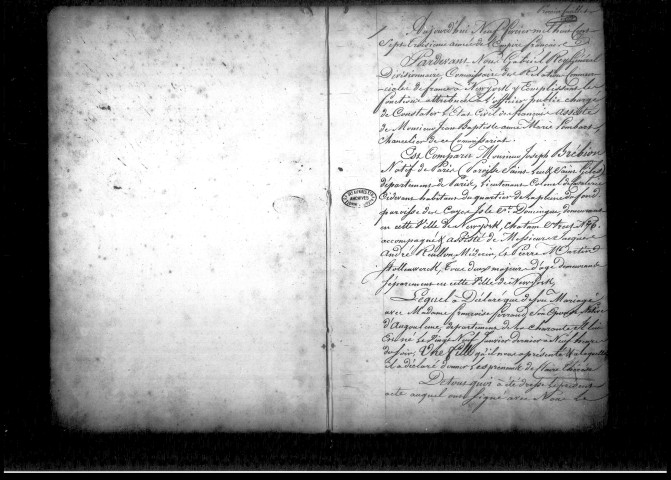 Aujourd'hui Neuf fevrier mil huit Cent
Sept troisieme année de l'Empire français
Pardevant Nous Gabriel Rey, Général
Divisionnaire, Commissaire des Relations Commer-
-ciales de france à New york y Remplissant les
fonctions attribuées à l'officier public chargé
de Constater l'Etat Civil des français assisté
de Monsieur Jean Baptiste anne Marie
Chancelier de ce Commissariat.
Est Comparu Monsieur Joseph Brebion
Natif de Paris (Paroisse Saint Leu & Saint Gilles)
département de Paris, Lieutenant Colonel de Cavalerie
Cidevant habitant du quartier de la plaine du fond
paroisse des Cayes Isle St. Domingue, demeurant
en cette Ville de New york, Chatam Street No. 96.
accompagné & assisté de Messieurs Jacques
André Médecin, et Pierre Martin
Hollenvverck, tous deux majeurs d'age demeurants
séparément en cette Ville de New York,
Lequel a Déclaré que de son Mariage
avec Madame françoise son Epouse Native
d'Angouleme, département de la Charente,
Est né le Vingt Neuf Janvier dernier à Neuf heures
du soir, Une fille qu'il nous a présentée & à laquelle
il a déclaré donner les prenoms de Claire
De tous quoi a été dressé le présent
acte auquel ont signé avec Nous le
ARCHIVES